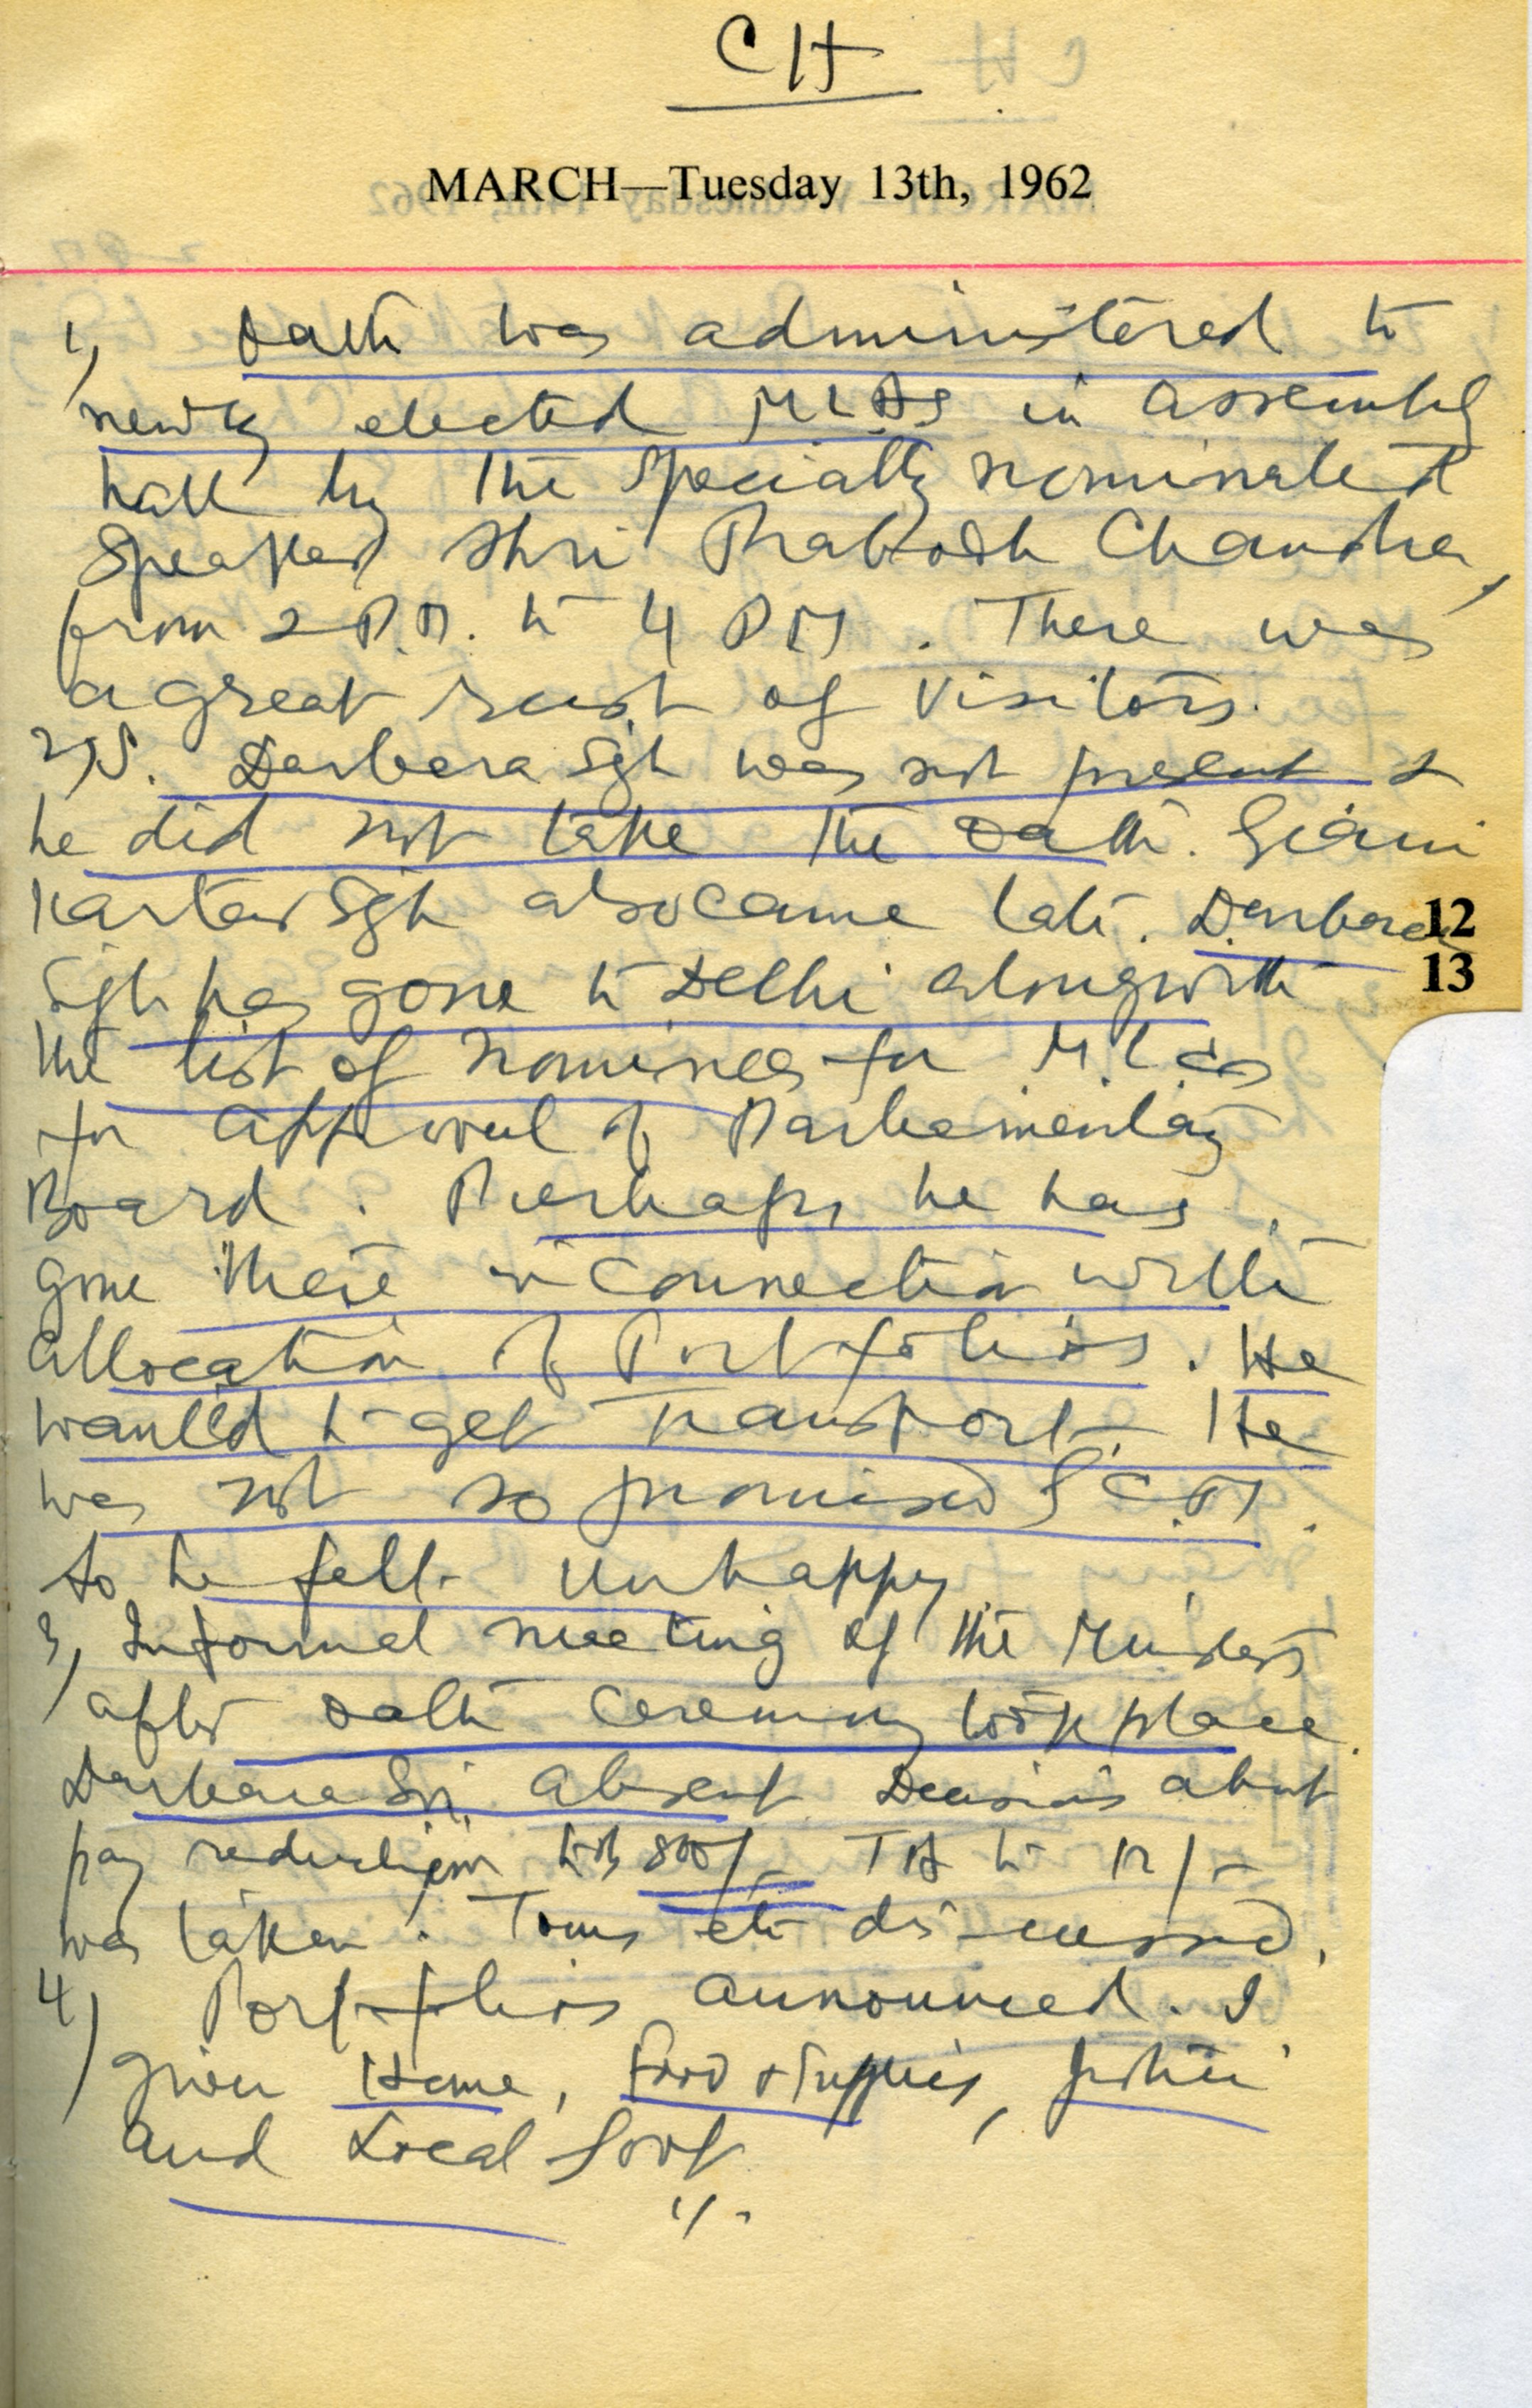 CH
MARCH—Tuesday 13th, 1962
1) Oath was administered to
newly elected MLAs in assembly
hall by the specially nominated
Speaker Shri Prabodh Chandra,
from 2 P.M. to 4 PM. There was
a great rush of visitors.
2) S. Darbara Sgh was not present &
he did not take the oath. Giani
Kartar Sgh also came late. Darbara
12
Sgh has gone to Delhi alongwith
13
the list of nominees for M.L.Cs
for approval of Parliamentary
Board. Perhaps he has
gone there in connection with
allocation of Portfolios. He
wanted to get Transport. He
was not so promised C.M.
so he felt unhappy
3) Informal meeting of the Ministers
after oath ceremony took place.
Darbara Sgh absent. Decisions about
pay reduction to Rs 800/- TA to 12/-
was taken. Tours etc discussed.
4) Portfolios announced. I
given Home, Food & Supplies, Justice
and Local Govt